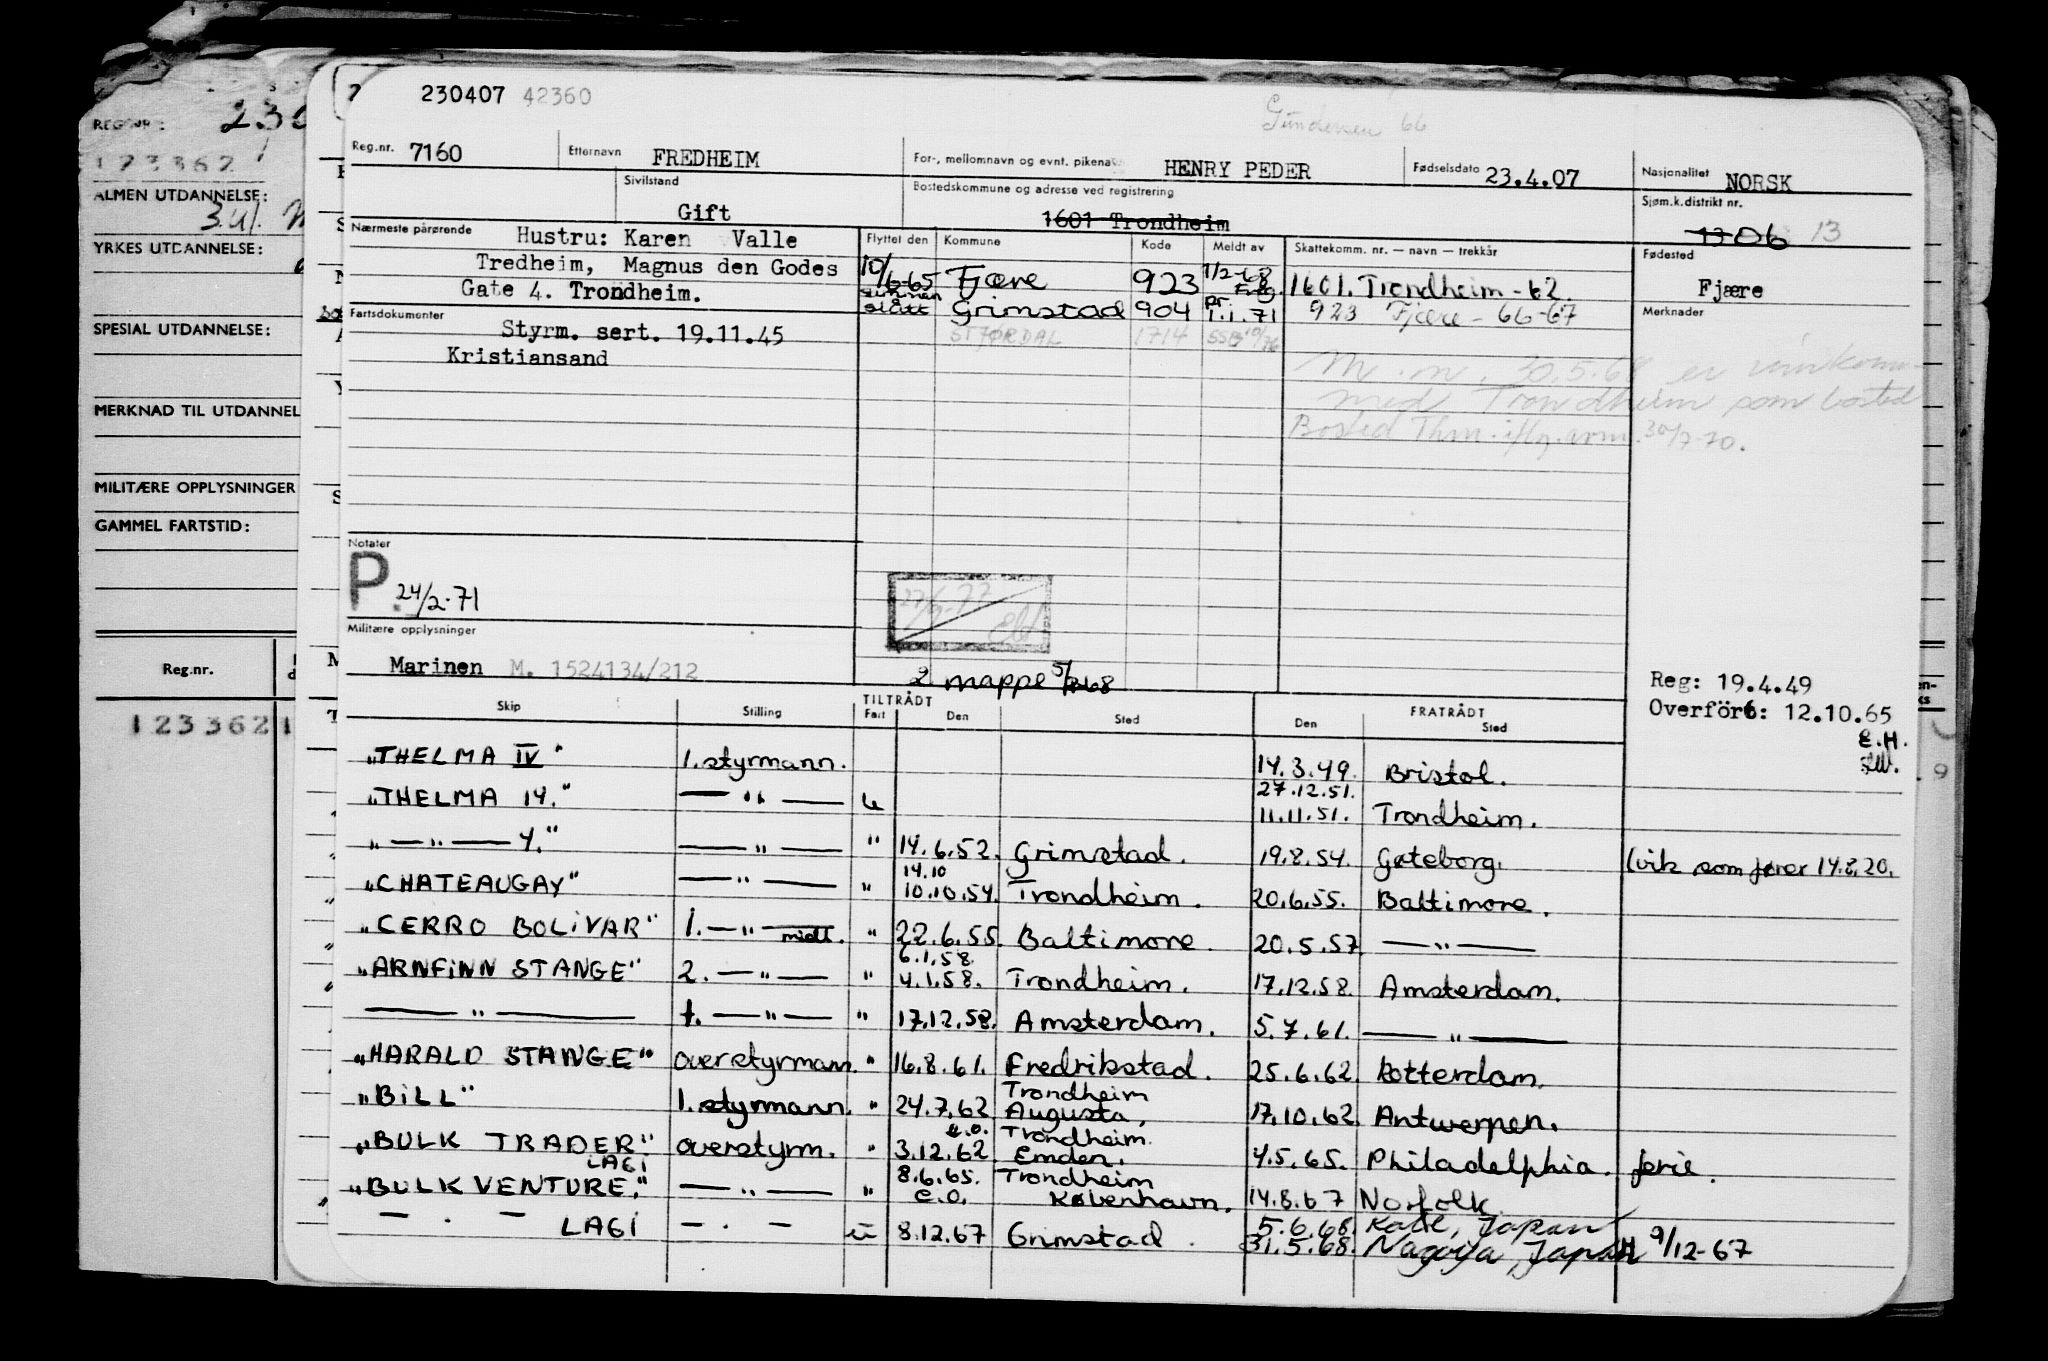 230407 42360
Gundersen 66
Reg.nr. 7160 Etternavn FREDHEIM For-, mellomnavn og evnt. pikena HENRY PEDER Fødselsdato 23.4.07 Nasjonalitet NORSK
Sivilstand Gift Bostedskommune og adresse ved registrering 1601 Trondheim Sjøm.k.distrikt nr. 1306 13
Nærmeste pårørende Hustru: Karen Valle
Tredheim, Magnus den Godes
Gate 4. Trondheim.
Flyttet den Kommune Kode Meldt av Skattekomm. nr. — navn — trekkår Fødested
10/6-65 Fjære 923 1/2-68 Freg. 1601. Trondheim - 62. Fjære
slått Grimstad 904 pr. 1.1.71 923 Fjære - 66-67 Merknader
STJØRDAL 1714 SSB 10/76
Fartsdokumenter Styrm. sert. 19.11.45
Kristiansand
M.m. 30.5.68 er
med Trondheim som bosted
Bosted Thm. iflg. 30/7-70.
Notater
P. 24/2-71
27/9-77
Militære opplysninger
Marinen M. 1524134/212
2. mappe 5/ 68
Reg: 19.4.49
Overført: 12.10.65
E.H.
Skip Stilling TILTRÅDT Fart Den Sted FRATRÅDT Den Sted
"THELMA IV" 1.styrmann. 14.3.49. Bristol.
27.12.51.
"THELMA 14." — " — u 11.11.51. Trondheim.
" — " — 4." — " — " 14.6.52. Grimstad. 19.8.54. Gøteborg. (vik som fører 14.8.20.
14.10
"CHATEAUGAY" — " — " 10.10.54. Trondheim. 20.6.55. Baltimore.
"CERRO BOLIVAR" 1. — " — midl. " 22.6.55. Baltimore. 20.5.57 — " —
6.1.58.
"ARNFINN STANGE" 2. — " — " 4.1.58. Trondheim. 17.12.58. Amsterdam.
— " — 1. — " — " 17.12.58. Amsterdam. 5.7.61. — " —
"HARALD STANGE" overstyrmann. " 16.8.61. Fredrikstad. 25.6.62. Rotterdam.
Trondheim
"BILL" 1.styrmann. " 24.7.62 Augusta, 17.10.62. Antwerpen.
e.o. Trondheim.
"BULK TRADER" overstyrm. " 3.12.62 Emden. 4.5.65. Philadelphia. ferie.
LAGI 8.6.65. Trondheim
"BULK VENTURE." — " — " e.o. København. 14.8.67 Norfolk.
5.6.68. Kobe, Japan
— . — LAGI — . — u 8.12.67 Grimstad. 31.5.68. Nagoya, Japan H 9/12-67
REG.NR.: 230
123362
ALMEN UTDANNELSE:
3.ul.
YRKES UTDANNELSE:
SPESIAL UTDANNELSE:
MERKNAD TIL UTDANNEL
MILITÆRE OPPLYSNINGER
GAMMEL FARTSTID:
Reg.nr.
1233621